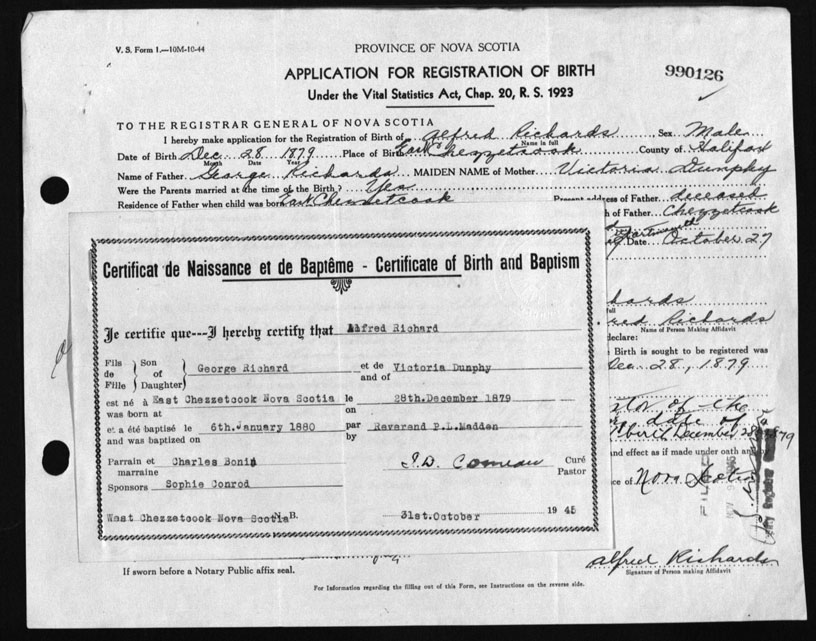 V. S. Form 1.—10M-10-44
PROVINCE OF NOVA SCOTIA
APPLICATION FOR REGISTRATION OF BIRTH
990126
Under the Vital Statistics Act, Chap. 20, R. S. 1923
TO THE REGISTRAR GENERAL OF NOVA SCOTIA
I hereby make application for the Registration of Birth of Alfred Richards, Sex Male
Name in full
Date of Birth Dec 28 1879 Place of Birth East Chezzetcook County of Halifax
Month Date Year
Name of Father George Richards MAIDEN NAME of Mother Victoria Dumphy
Were the Parents married at the time of the Birth? Yes
Residence of Father when child was born East Chezzetcook Present address of Father deceased
h of Father Chezzetcook
Dartmouth
Date October 27
Certificat de Naissance et de Baptême - Certificate of Birth and Baptism
Je certifie que---I hereby certify that Alfred Richard
Fils de Fille Son of Daughter George Richard et de and of Victoria Dunphy
est né à was born at East Chezzetcook Nova Scotia le on 28th.December 1879
et a été baptisé le and was baptized on 6th.January 1880 par by Reverend P.L.Madden
Parrain et marraine Sponsors Charles Bonin
Sophie Conrod
J.D. Comeau Curé Pastor
West Chezzetcook Nova Scotia N.B. 31st.October 1945
hards
red Richards
Name of Person Making Affidavit
declare:
Birth is sought to be registered was
Dec 28, 1879
of the
date of
December 28 1879
nd effect as if made under oath an
e of Nova Scotia
FILED
alfred Richards
Signature of Person making Affidavit
If sworn before a Notary Public affix seal.
For Information regarding the filling out of this Form, see Instructions on the reverse side.